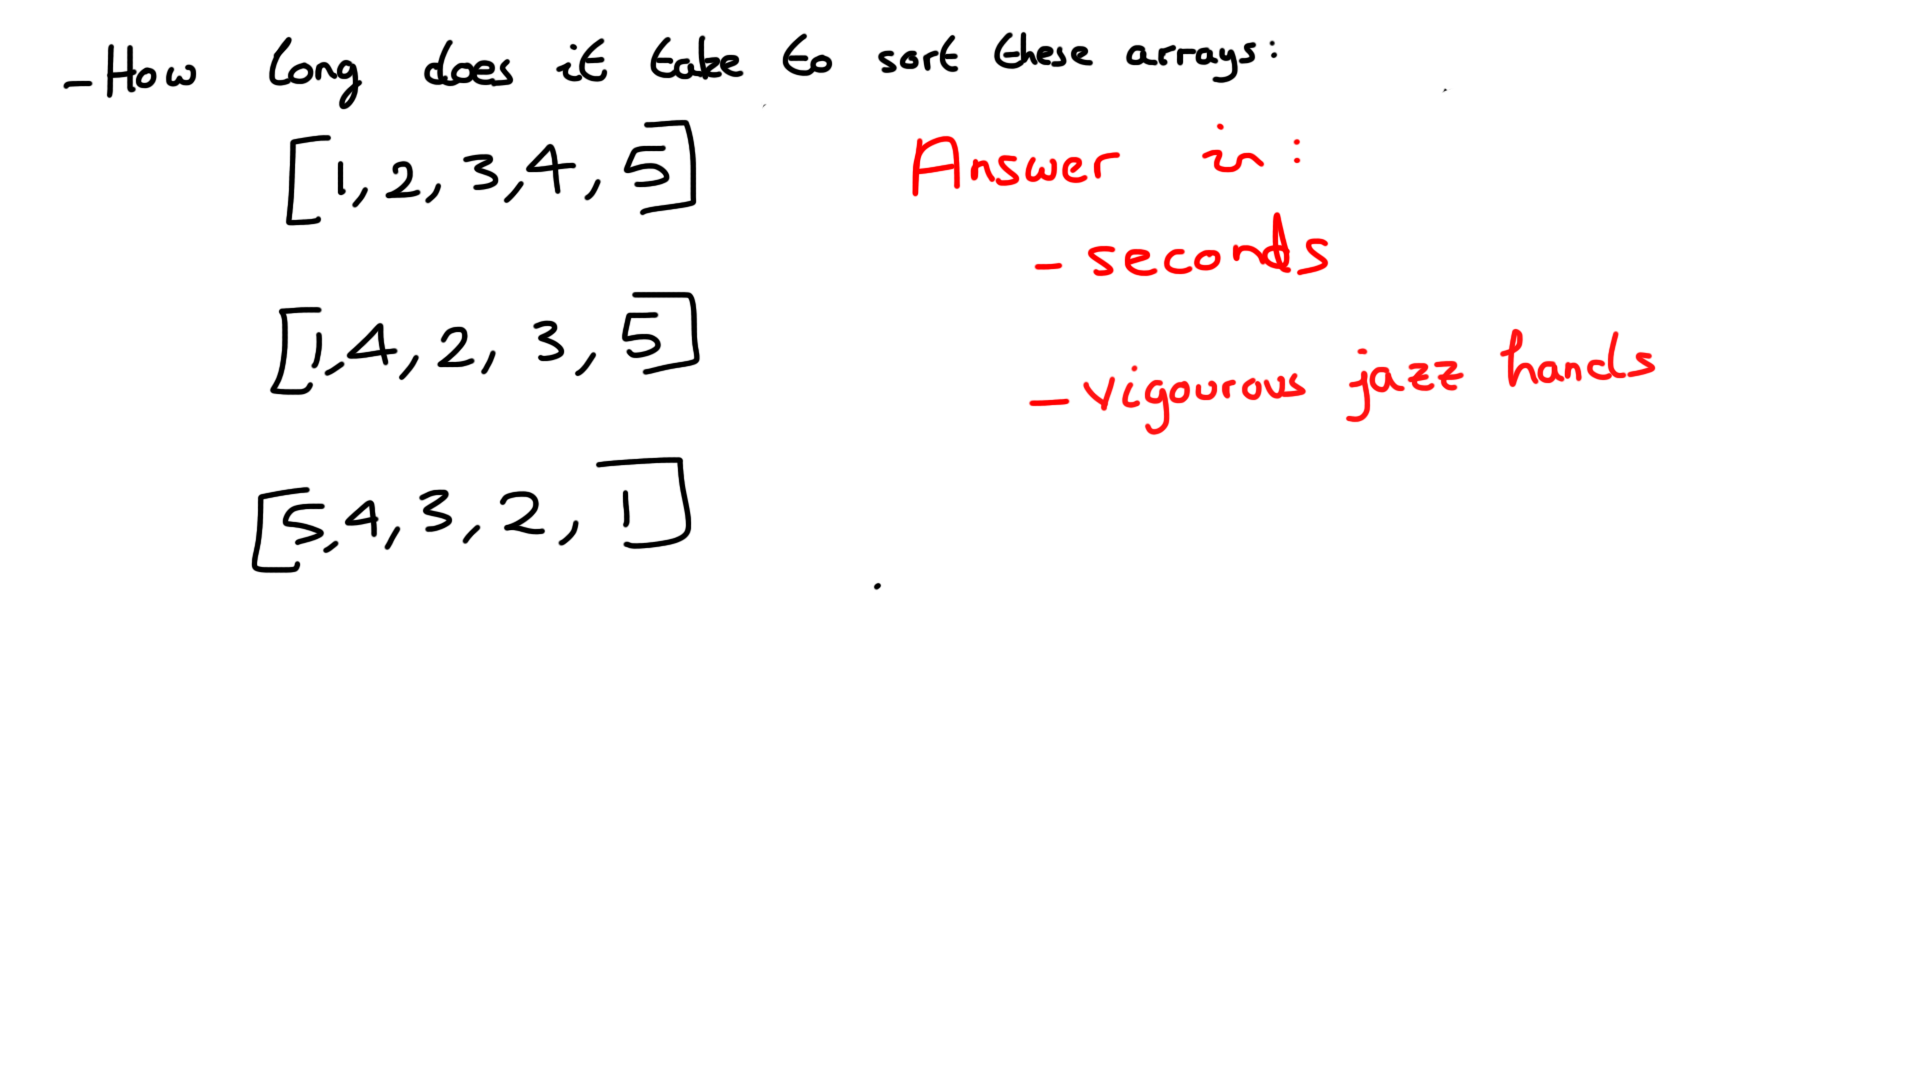 - How long does it take to sort these arrays:
[1, 2, 3, 4, 5]
[1, 4, 2, 3, 5]
[5, 4, 3, 2, 1]
Answer in:
- seconds
- vigourous jazz hands